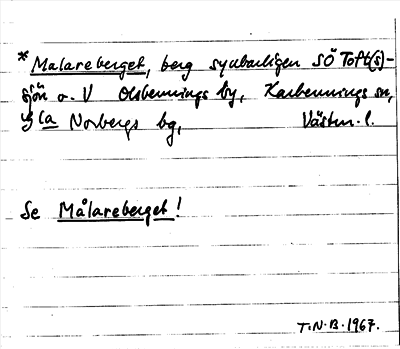 *Malareberget, berg synbarligen SÖ Toft(s)-
sjön o. V Olsbennings by, Karbennings sn,
Gla Norbergs bg, Västm. l.
Se Målareberget!
T.N.B. 1967.